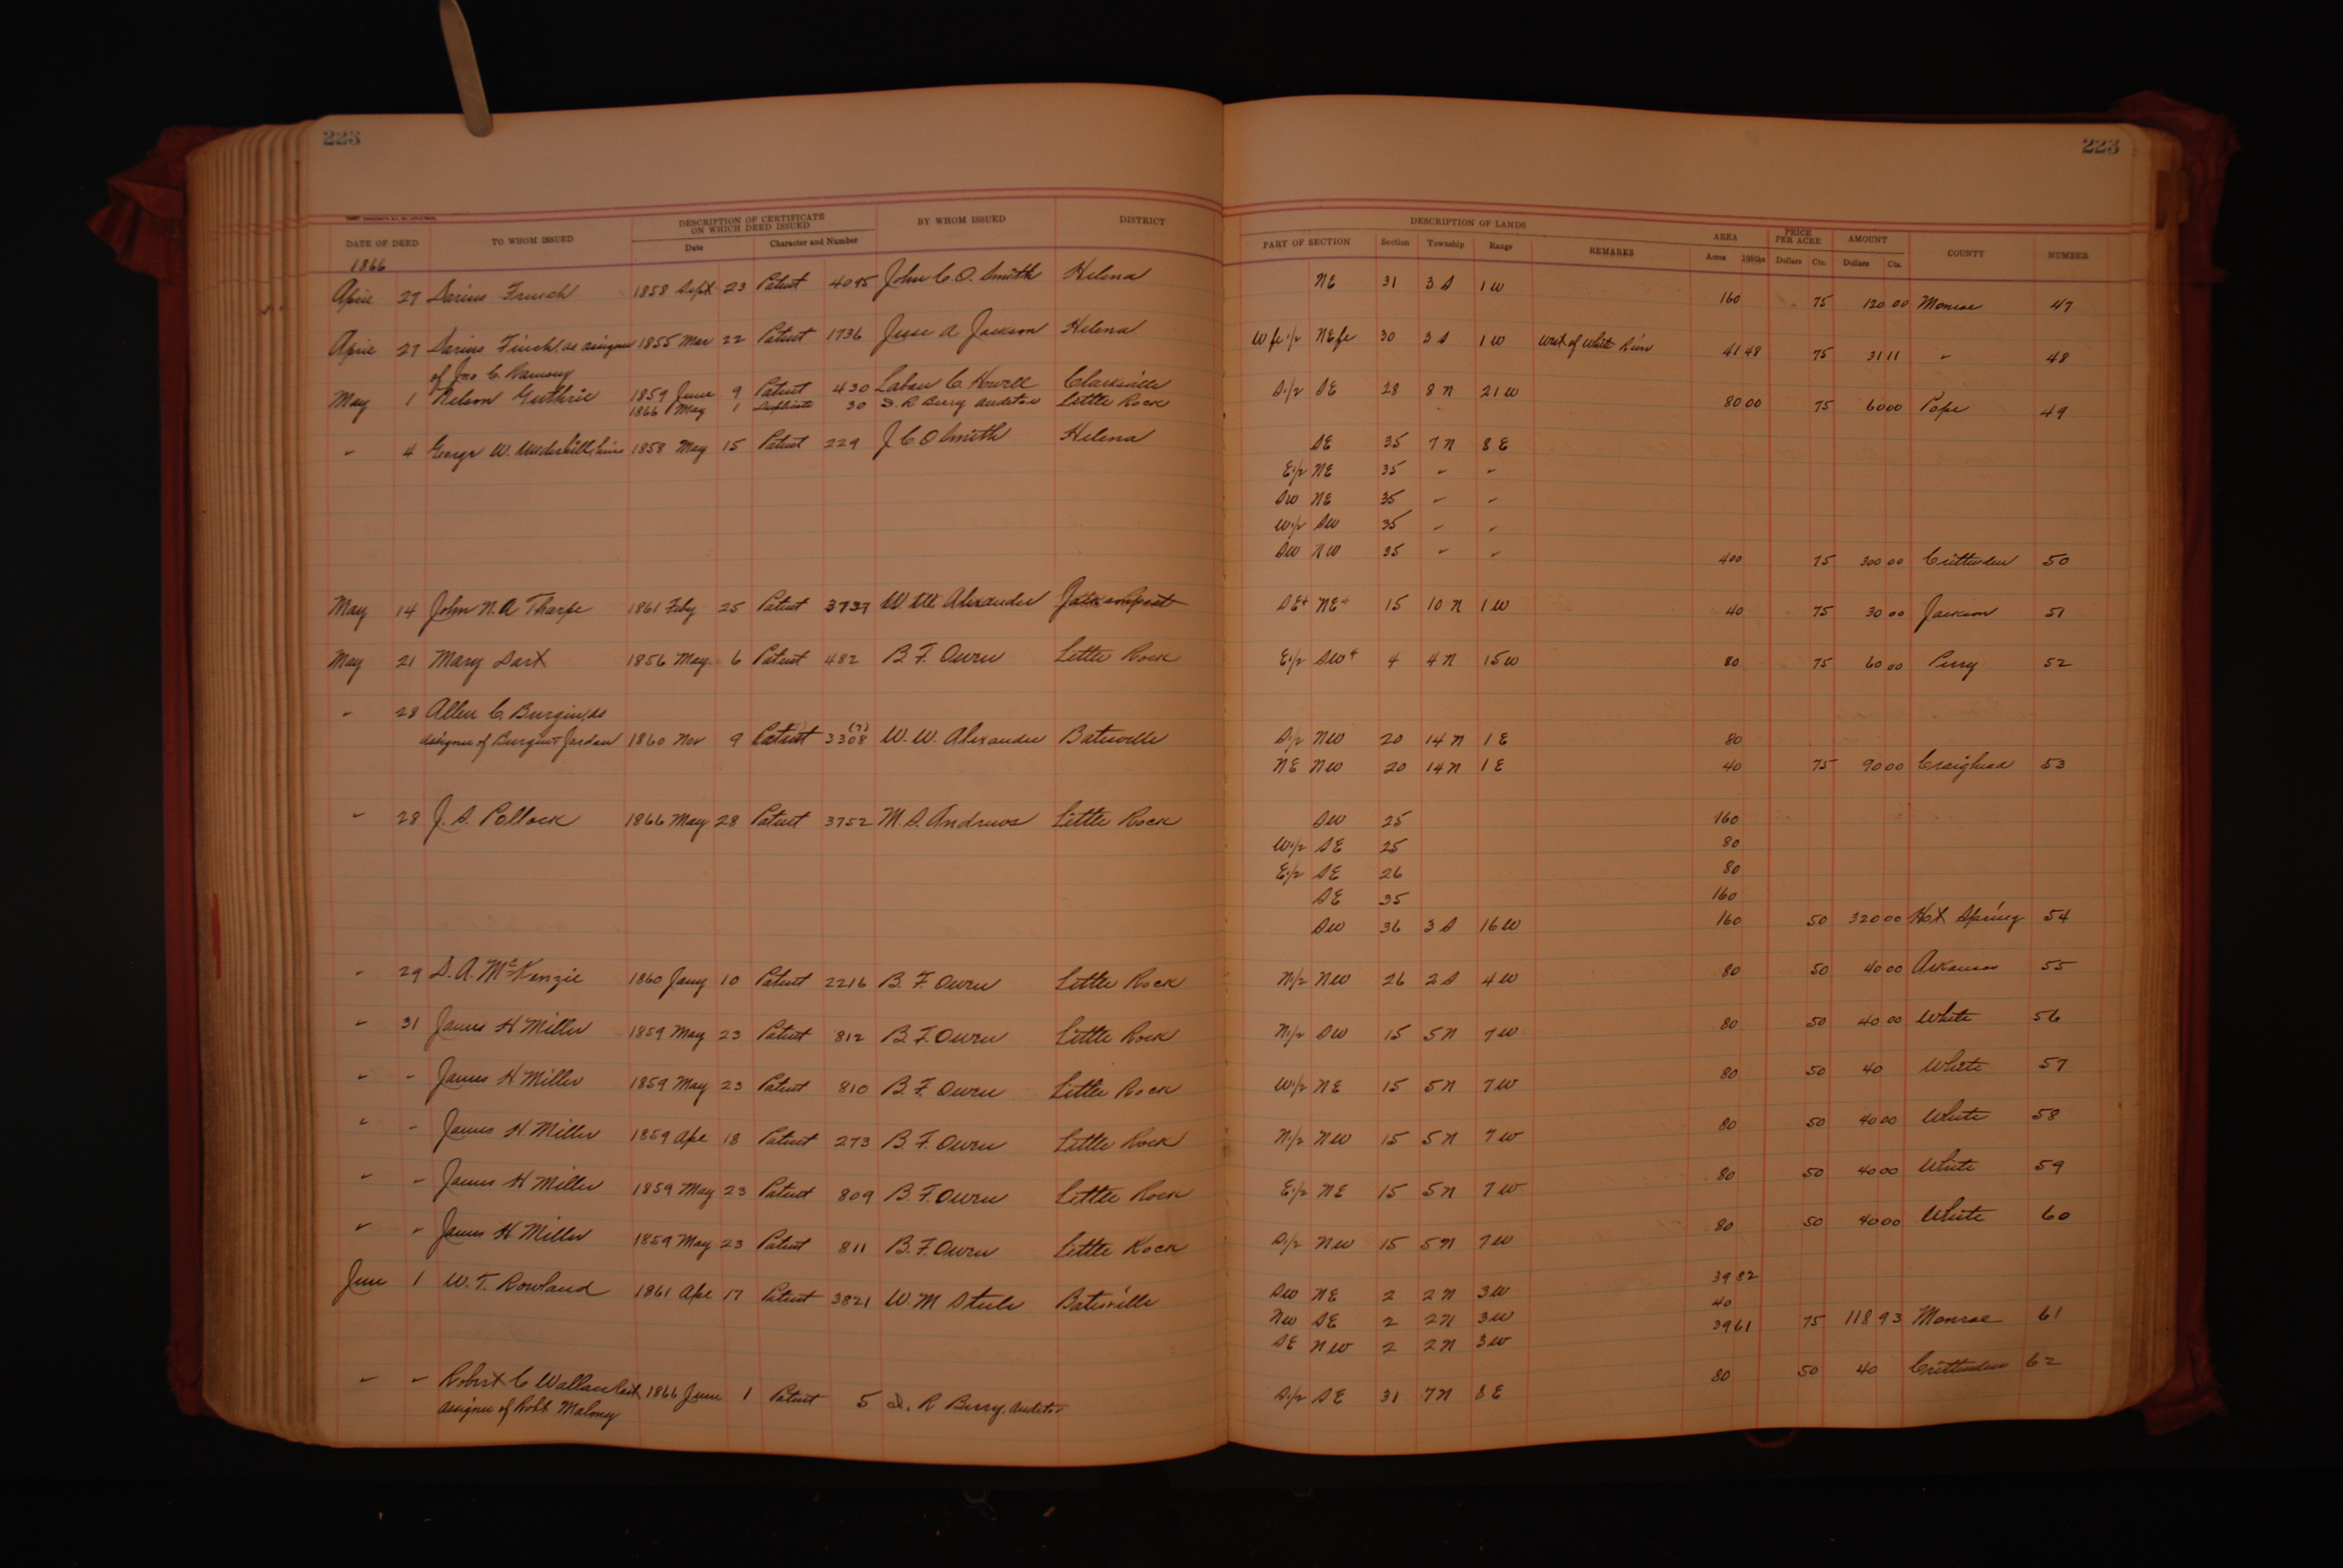 223 223
DESCRIPTION OF CERTIFICATE
ON WHICH DEED ISSUED
BY WHOM ISSUED DISTRICT DESCRIPTION OF LANDS
DATE OF DEED TO WHOM ISSUED Date Character and Number PART OF SECTION Section Township Range REMARKS AREA Acres 100ths PRICE PER ACRE Dollars Cts. AMOUNT Dollars Cts. COUNTY NUMBER
1866
April 27 Darius French 1858 Sept 23 Patent 4095 John C. O. Smith Helena NE 31 3 S 1 W 160 75 120 00 Monroe 47
April 27 Darius Finch, as assignee 1855 Mar 22 Patent 1736 Jesse A Jackson Helena W fr 1/2 NE fr 30 3 S 1 W West of White River 41 48 75 31 11 " 48
of Jno C. Ramsey
May 1 Nelson Guthrie 1859 June 9 Patent 430 Laban C. Howell Clarksville S 1/2 SE 28 8 N 21 W 80 00 75 60 00 Pope 49
1866 May 1 Duplicate 30 D. R Berry Auditor Little Rock
" 4 George W. Underhill, heirs 1858 May 15 Patent 229 J C O Smith Helena SE 35 7 N 8 E
E 1/2 NE 35 " "
SW NE 35 " "
W 1/2 SW 35 " "
SW NW 35 " " 400 75 300 00 Crittenden 50
May 14 John N. A Tharpe 1861 Feby 25 Patent 3737 W W Alexander Jacksonport SE4 NE4 15 10 N 1 W 40 75 30 00 Jackson 51
May 21 Mary Sart 1856 May 6 Patent 482 B. F. Owen Little Rock E 1/2 SW4 4 4 N 15 W 80 75 60 00 Perry 52
" 28 Allen C. Burgin, as
assignee of Burgin & Jordan 1860 Nov 9 Patent 3308 (?) W. W. Alexander Batesville S 1/2 NW 20 14 N 1 E 80
NE NW 20 14 N 1 E 40 75 90 00 Craighead 53
" 28 J. S. Pollock 1866 May 28 Patent 3752 M. S. Andrews Little Rock SW 25 160
W 1/2 SE 25 80
E 1/2 SE 26 80
SE 35 160
SW 36 3 S 16 W 160 50 320 00 Hot Spring 54
" 29 D. A. McKenzie 1860 Jany 10 Patent 2216 B. F. Owen Little Rock N 1/2 NW 26 2 S 4 W 80 50 40 00 Arkansas 55
" 31 James H Miller 1859 May 23 Patent 812 B. F. Owen Little Rock N 1/2 SW 15 5 N 7 W 80 50 40 00 White 56
" " James H Miller 1859 May 23 Patent 810 B. F. Owen Little Rock W 1/2 NE 15 5 N 7 W 80 50 40 White 57
" " James H Miller 1859 Apl 18 Patent 273 B. F. Owen Little Rock N 1/2 NW 15 5 N 7 W 80 50 40 00 White 58
" " James H Miller 1859 May 23 Patent 809 B. F. Owen Little Rock E 1/2 NE 15 5 N 7 W 80 50 40 00 White 59
" " James H Miller 1859 May 23 Patent 811 B. F. Owen Little Rock S 1/2 NW 15 5 N 7 W 80 50 40 00 White 60
June 1 W. T. Rowland 1861 Apl 17 Patent 3821 W. M Steele Batesville SW NE 2 2 N 3 W 39 82
NW SE 2 2 N 3 W 40
SE NW 2 2 N 3 W 39 61 75 118 93 Monroe 61
" " Robert C Wallace last 1866 June 1 Patent 5 D. R Berry, Auditor S 1/2 SE 31 7 N 8 E 80 50 40 Crittenden 62
assignee of Robt Maloney